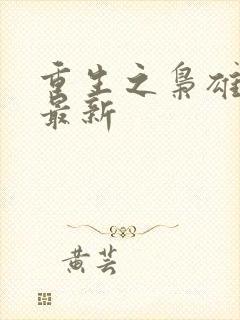 重生之枭雄
最新
黄芸